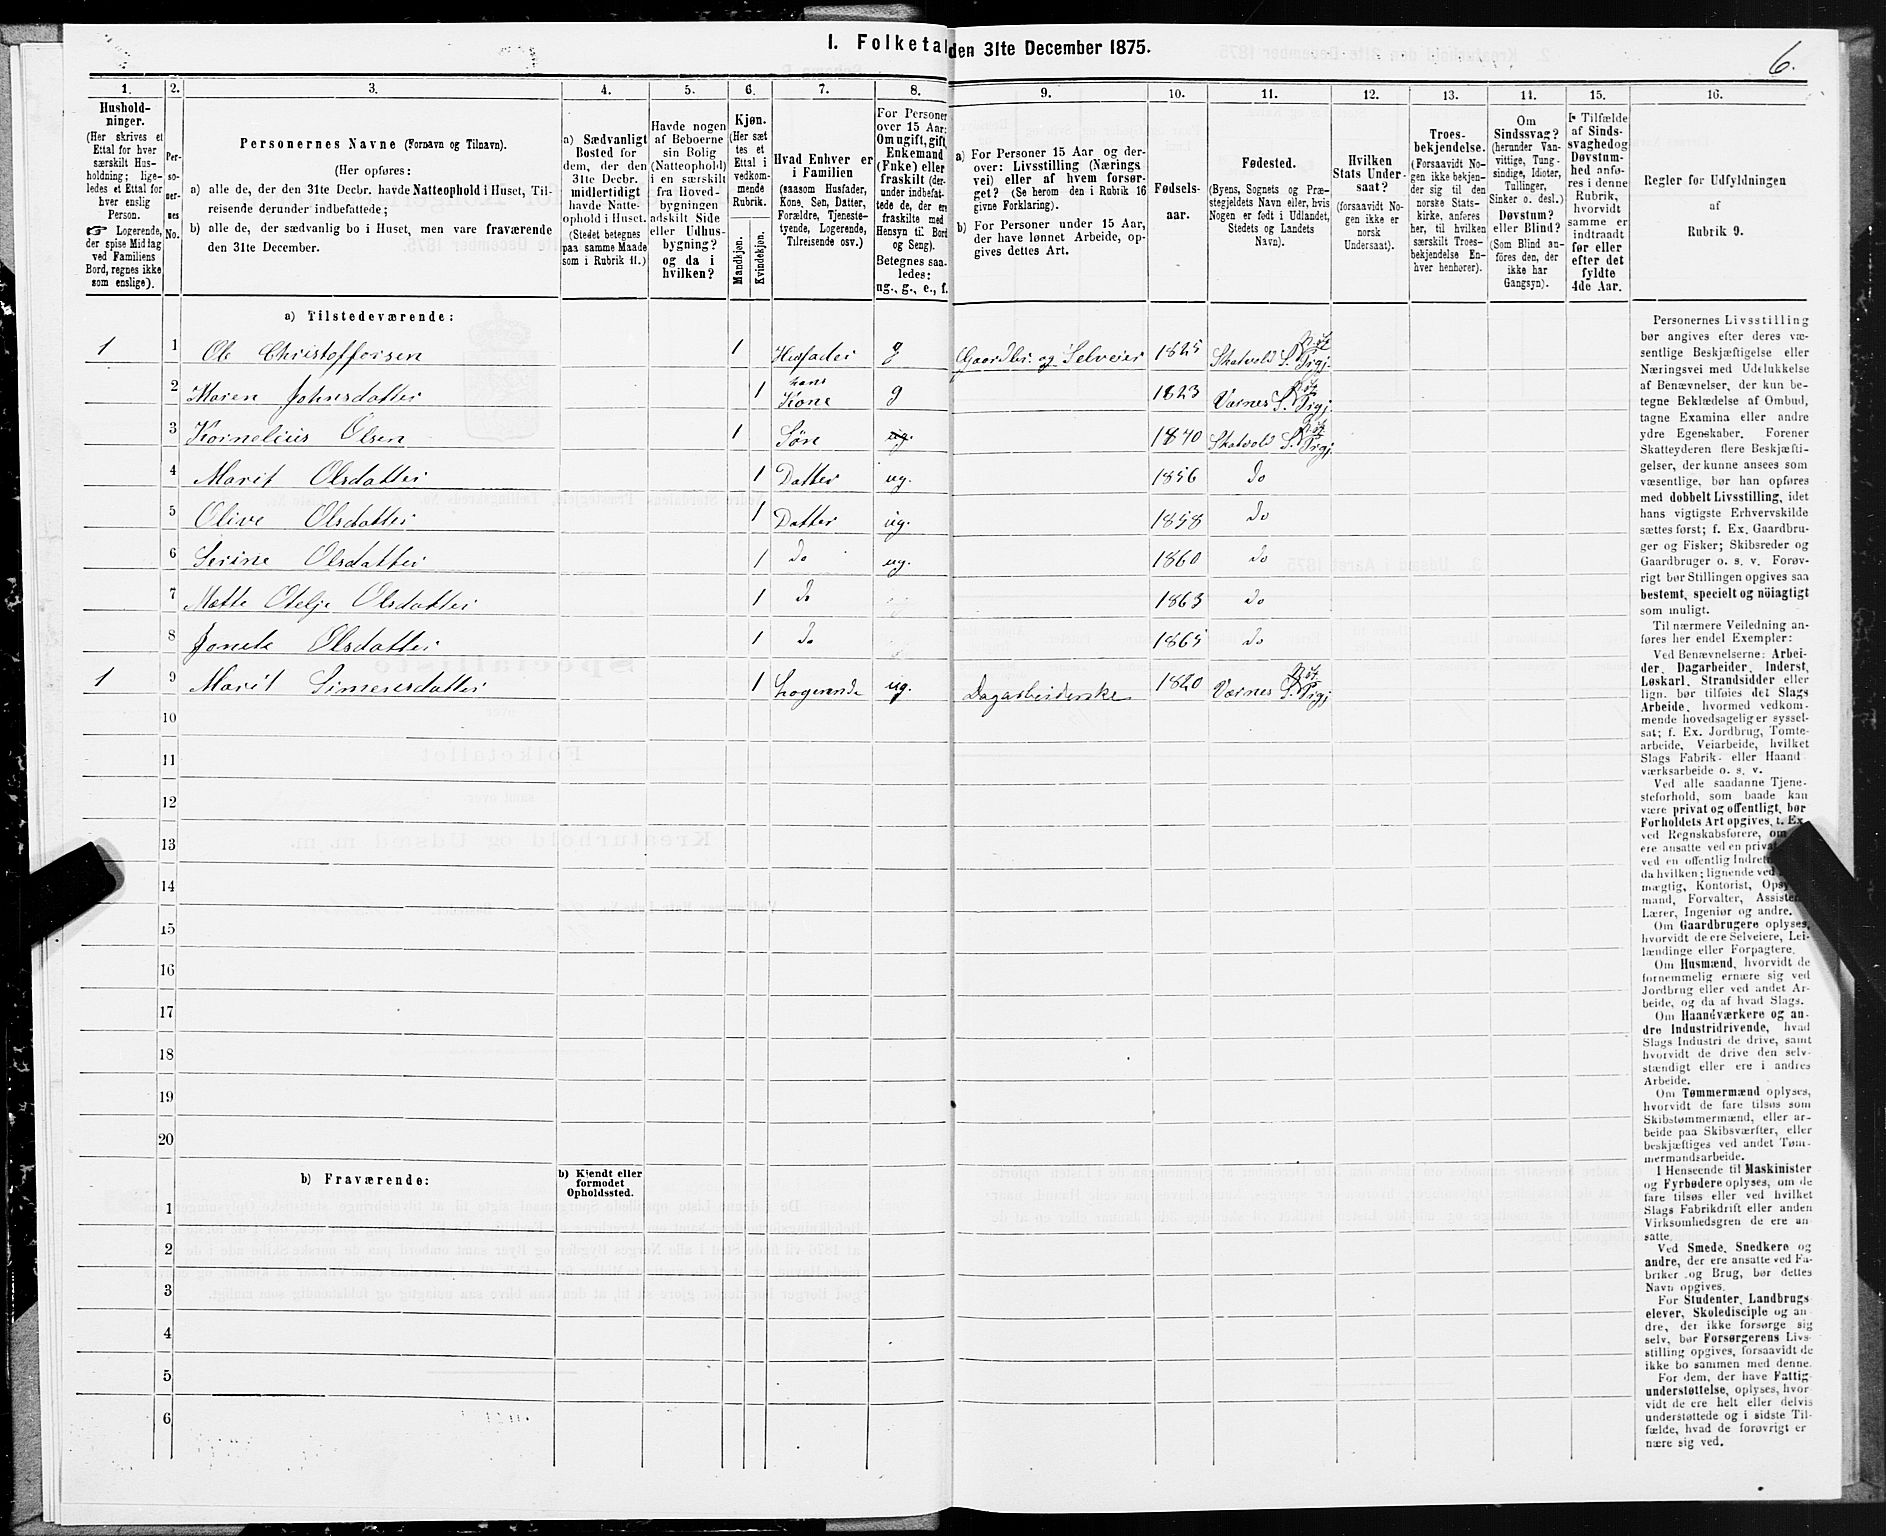 I. Folketal den 31te December 1875.
6.
1. 2. 3. 4. 5. 6. 7. 8. 9. 10. 11. 12. 13. 14. 15. 16.
Hushold-
ninger.
(Her skrives et
Ettal for hver
særskilt Hus-
holdning; lige-
ledes et Ettal for
hver enslig
Person.
☞ Logerende,
der spise Middag
ved Familiens
Bord, regnes ikke
som enslige).
Per-
so-
ner-
nes
No.
Personernes Navne (Fornavn og Tilnavn).
(Her opføres:
a) alle de, der den 31te Decbr. havde Natteophold i Huset, Til-
reisende derunder indbefattede;
b) alle de, der sædvanlig bo i Huset, men vare fraværende
den 31te December.
a) Sædvanligt
Bosted for
dem, der den
31te Decbr.
midlertidigt
havde Natte-
ophold i Huset.
(Stedet betegnes
paa samme Maade
som i Rubrik 11.)
Havde nogen
af Beboerne
sin Bolig
(Natteophold)
i en særskilt
fra Hoved-
bygningen
adskilt Side
eller Udhus-
bygning?
og da i
hvilken?
Kjøn.
(Her sæt
tes et
Ettal i
vedkom-
mende
Rubrik.
Mandkjøn.
Kvindekjøn.
Hvad Enhver er
i Familien
(saasom Husfader,
Kone, Søn, Datter,
Forældre, Tjeneste-
tyende, Logerende,
Tilreisende osv.)
For Personer
over 15 Aar:
Om ugift, gift,
Enkemand
(Enke) eller
fraskilt (der-
under indbefat-
tede de, der ere
fraskilte med
Hensyn til Bord
og Seng).
Betegnes saa-
ledes:
ug., g., e., f.
a) For Personer 15 Aar og der-
over: Livsstilling (Nærings
vei) eller af hvem forsør-
get? (Se herom den i Rubrik 16
givne Forklaring).
b) For Personer under 15 Aar,
der have lønnet Arbeide, op-
gives dettes Art.
Fødsels-
aar.
Fødested.
(Byens, Sognets og Præ-
stegjeldets Navn eller, hvis
Nogen er født i Udlandet,
Stedets og Landets
Navn).
Hvilken
Stats Under-
saat?
(forsaavidt No-
gen ikke er
norsk
Undersaat).
Troes-
bekjendelse.
(Forsaavidt No-
gen ikke bekjen-
der sig til den
norske Stats-
kirke, anføres
her, til hvilken
særskilt Troes-
bekjendelse En-
hver henhører).
Om
Sindssvag?
(herunder Van-
vittige, Tung-
sindige, Idioter,
Tullinger,
Sinker o. desl.)
Døvstum?
eller Blind?
(Som Blind an-
føres den, der
ikke har
Gangsyn).
I Tilfælde
af Sinds-
svaghed og
Døvstum-
hed anfø-
res i denne
Rubrik,
hvorvidt
samme er
indtraadt
før eller
efter det
fyldte
4de Aar.
Regler for Udfyldningen
af
Rubrik 9.
a) Tilstedeværende:
1 1 Ole Christoffersen 1 Husfader g Gaardbr. og Selveier 1825 Skatvold S. Prgj.
2 Maren Johnsdatter 1 hans Kone g 1823 Værnes S. Prgj
3 Kornelius Olsen 1 Søn ug. 1840 Skatvold S. Prgj.
4 Marit Olsdatter 1 Datter ug. 1856 Do
5 Olive Olsdatter 1 Datter ug. 1858 Do
6 Serine Olsdatter 1 do ug. 1860 do
7 Mætte Otelje Olsdatter 1 do 1863 do
8 Jonete Olsdatter 1 do 1865 do
1 9 Marit Simensdatter 1 Logerende ug. Dagarbeiderske 1820 Værnes S. Prgj
10
11
12
13
14
15
16
17
18
19
20
b) Fraværende:
b) Kjendt eller
formodet
Opholdssted.
1
2
3
4
5
6
Personernes Livsstilling
bør angives efter deres væ-
sentlige Beskjæftigelse eller
Næringsvei med Udelukkelse
af Benævnelser, der kun be-
tegne Beklædelse af Ombud,
tagne Examina eller andre
ydre Egenskaber. Forener
Skatteyderen flere Beskjæfti-
gelser, der kunne ansees som
væsentlige, bør han opføres
med dobbelt Livsstilling, idet
hans vigtigste Erhvervskilde
sættes først; f. Ex. Gaardbru-
ger og Fisker; Skibsreder og
Gaardbruger o. s. v. Forøv-
rigt bør Stillingen opgives saa
bestemt, specielt og nöiagtigt
som muligt.
Til nærmere Veiledning an-
føres her endel Exempler:
Ved Benævnelserne: Arbei-
der, Dagarbeider, Inderst,
Løskarl, Strandsidder eller
lign. bør tilføies det Slags
Arbeide, hvormed vedkom-
mende hovedsagelig er syssel-
sat; f. Ex. Jordbrug, Tomte-
arbeide, Veiarbeide, hvilket
Slags Fabrik- eller Haand
værksarbeide o. s. v.
Ved alle saadanne Tjene-
steforhold, som baade kan
være privat og offentligt, bør
Forholdets Art opgives, f. Ex.
ved Regnskabsførere, om
ere ansatte ved en privat
ved en offentlig Indret
da hvilken; lignende ved
mægtig, Kontorist, Opsy
mand, Forvalter, Assisten
Lærer, Ingeniør og andre.
Om Gaardbrugere oplyses,
hvorvidt de ere Selveiere, Lei-
lændinge eller Forpagtere.
Om Husmænd, hvorvidt de
fornemmelig ernære sig ved
Jordbrug eller ved andet Ar-
beide, og da af hvad Slags.
Om Haandværkere og an-
dre Industridrivende, hvad
Slags Industri de drive, samt
hvorvidt de drive den selv-
stændigt eller ere i andres
Arbeide.
Om Tømmermænd oplyses,
hvorvidt de fare tilsøs som
Skibstømmermænd, eller ar-
beide paa Skibsværfter, eller
beskjæftiges ved andet Tøm-
mermandsarbeide.
I Henseende til Maskinister
og Fyrbødere oplyses, om de
fare tilsøs eller ved hvilket
Slags Fabrikdrift eller anden
Virksomhedsgren de ere an-
satte.
Ved Smede, Snedkere og
andre, der ere ansatte ved Fa-
briker og Brug, bør dettes
Navn opgives.
For Studenter, Landbrugs
elever, Skoledisciple og an-
dre, der ikke forsørge sig
selv, bør Forsørgerens Livs-
stilling opgives, forsaavidt de
ikke bo sammen med denne.
For dem, der have Fattig-
understøttelse, oplyses, hvor-
vidt de ere helt eller delvis
understøttede og i sidste Til-
fælde, hvad de forøvrigt er
nære sig ved.